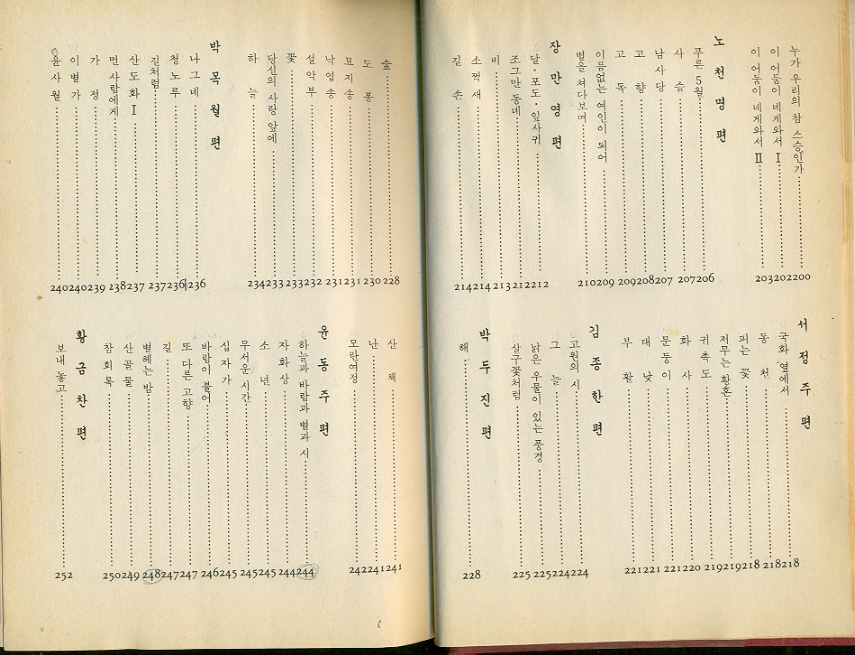 누가 우리의 참 스승인가 200
이 어둠이 네게와서 Ⅰ 202
이 어둠이 네게와서 Ⅱ 203
노천명 편
푸른 5월 206
사슴 207
남사당 207
고향 208
고독 209
이름없는 여인이 되어 209
별을 쳐다보며 210
장만영 편
달·포도·잎사귀 212
조그만 동네 212
비 213
소쩍새 214
길손 214
서정주 편
국화 옆에서 218
동천 218
피는 꽃 218
저무는 황혼 219
귀촉도 219
화사 220
문둥이 221
대낮 221
부활 221
김종한 편
고원의 시 224
그늘 224
낡은 우물이 있는 풍경 225
살구꽃처럼 225
박두진 편
해 228
숲 228
도봉 230
묘지송 231
낙엽송 231
설악부 232
꽃 233
당신의 사랑 앞에 233
하늘 234
박목월 편
나그네 236
청노루 236
길처럼 237
산도화 Ⅰ 237
먼 사람에게 238
가정 239
이별가 240
윤사월 240
산채 241
난 241
모란여정 242
윤동주 편
하늘과 바람과 별과 시 244
자화상 244
소년 245
무서운 시간 245
십자가 245
바람이 불어 246
또 다른 고향 247
길 247
별헤는 밤 248
산골물 249
참회록 250
황금찬 편
보내 놓고 252